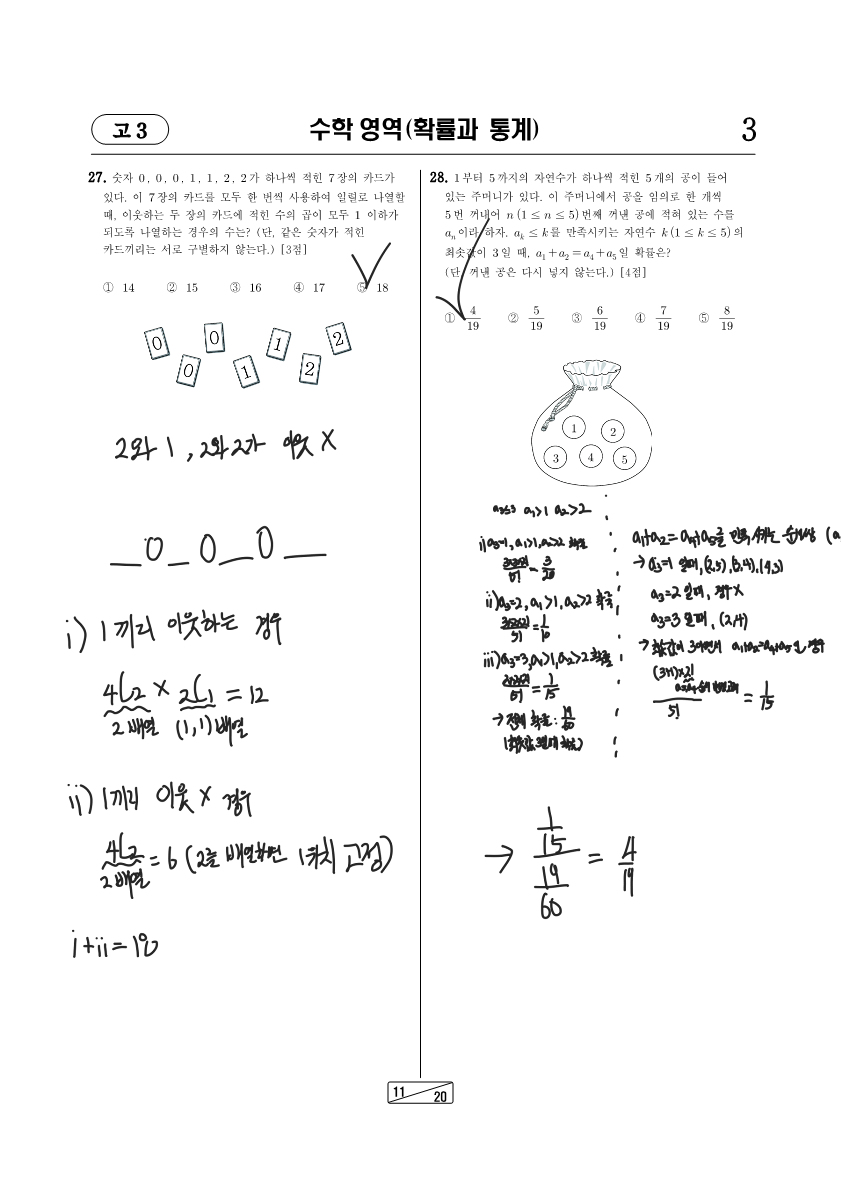 고 3
수학 영역(확률과 통계)
3
27. 숫자 0, 0, 0, 1, 1, 2, 2가 하나씩 적힌 7장의 카드가
있다. 이 7장의 카드를 모두 한 번씩 사용하여 일렬로 나열할
때, 이웃하는 두 장의 카드에 적힌 수의 곱이 모두 1 이하가
되도록 나열하는 경우의 수는? (단, 같은 숫자가 적힌
카드끼리는 서로 구별하지 않는다.) [3점]
① 14 ② 15 ③ 16 ④ 17 ⑤ 18
0 0 0 1 1 2 2
2와 1, 2와 2가 이웃 X
_ 0 _ 0 _ 0 _
i) 1끼리 이웃하는 경우
4C2 × 2C1 = 12
2 배열 (1,1) 배열
ii) 1끼리 이웃 X 경우
4C2 = 6 (2를 배열하면 1위치 고정)
2 배열
i+ii=18
28. 1부터 5까지의 자연수가 하나씩 적힌 5개의 공이 들어
있는 주머니가 있다. 이 주머니에서 공을 임의로 한 개씩
5번 꺼내어 n(1≤n≤5)번째 꺼낸 공에 적혀 있는 수를
aₙ이라 하자. aₖ≤k를 만족시키는 자연수 k(1≤k≤5)의
최솟값이 3일 때, a₁+a₂=a₄+a₅일 확률은?
(단, 꺼낸 공은 다시 넣지 않는다.) [4점]
① 4/19 ② 5/19 ③ 6/19 ④ 7/19 ⑤ 8/19
1 2
3 4 5
a₃≤3 a₁>1 a₂>2
i) a₃=1, a₁>1, a₂>2 확률
= 3/20
ii) a₃=2, a₁>1, a₂>2 확률
= 1/10
iii) a₃=3, a₁>1, a₂>2 확률
= 1/15
→ 전체 확률 : 19/60
a₁+a₂=a₄+a₅를 만족시키는 순서쌍
→ a₃=1 일때, (2,5), (3,4), (4,3)
a₃=2 일때, 경우 X
a₃=3 일때, (2,4)
→ 최솟값이 3이면서 a₁+a₂=a₄+a₅일 경우
(3+1)×2!
5!
= 1/15
→ (1/15)/(19/60) = 4/19
11
20